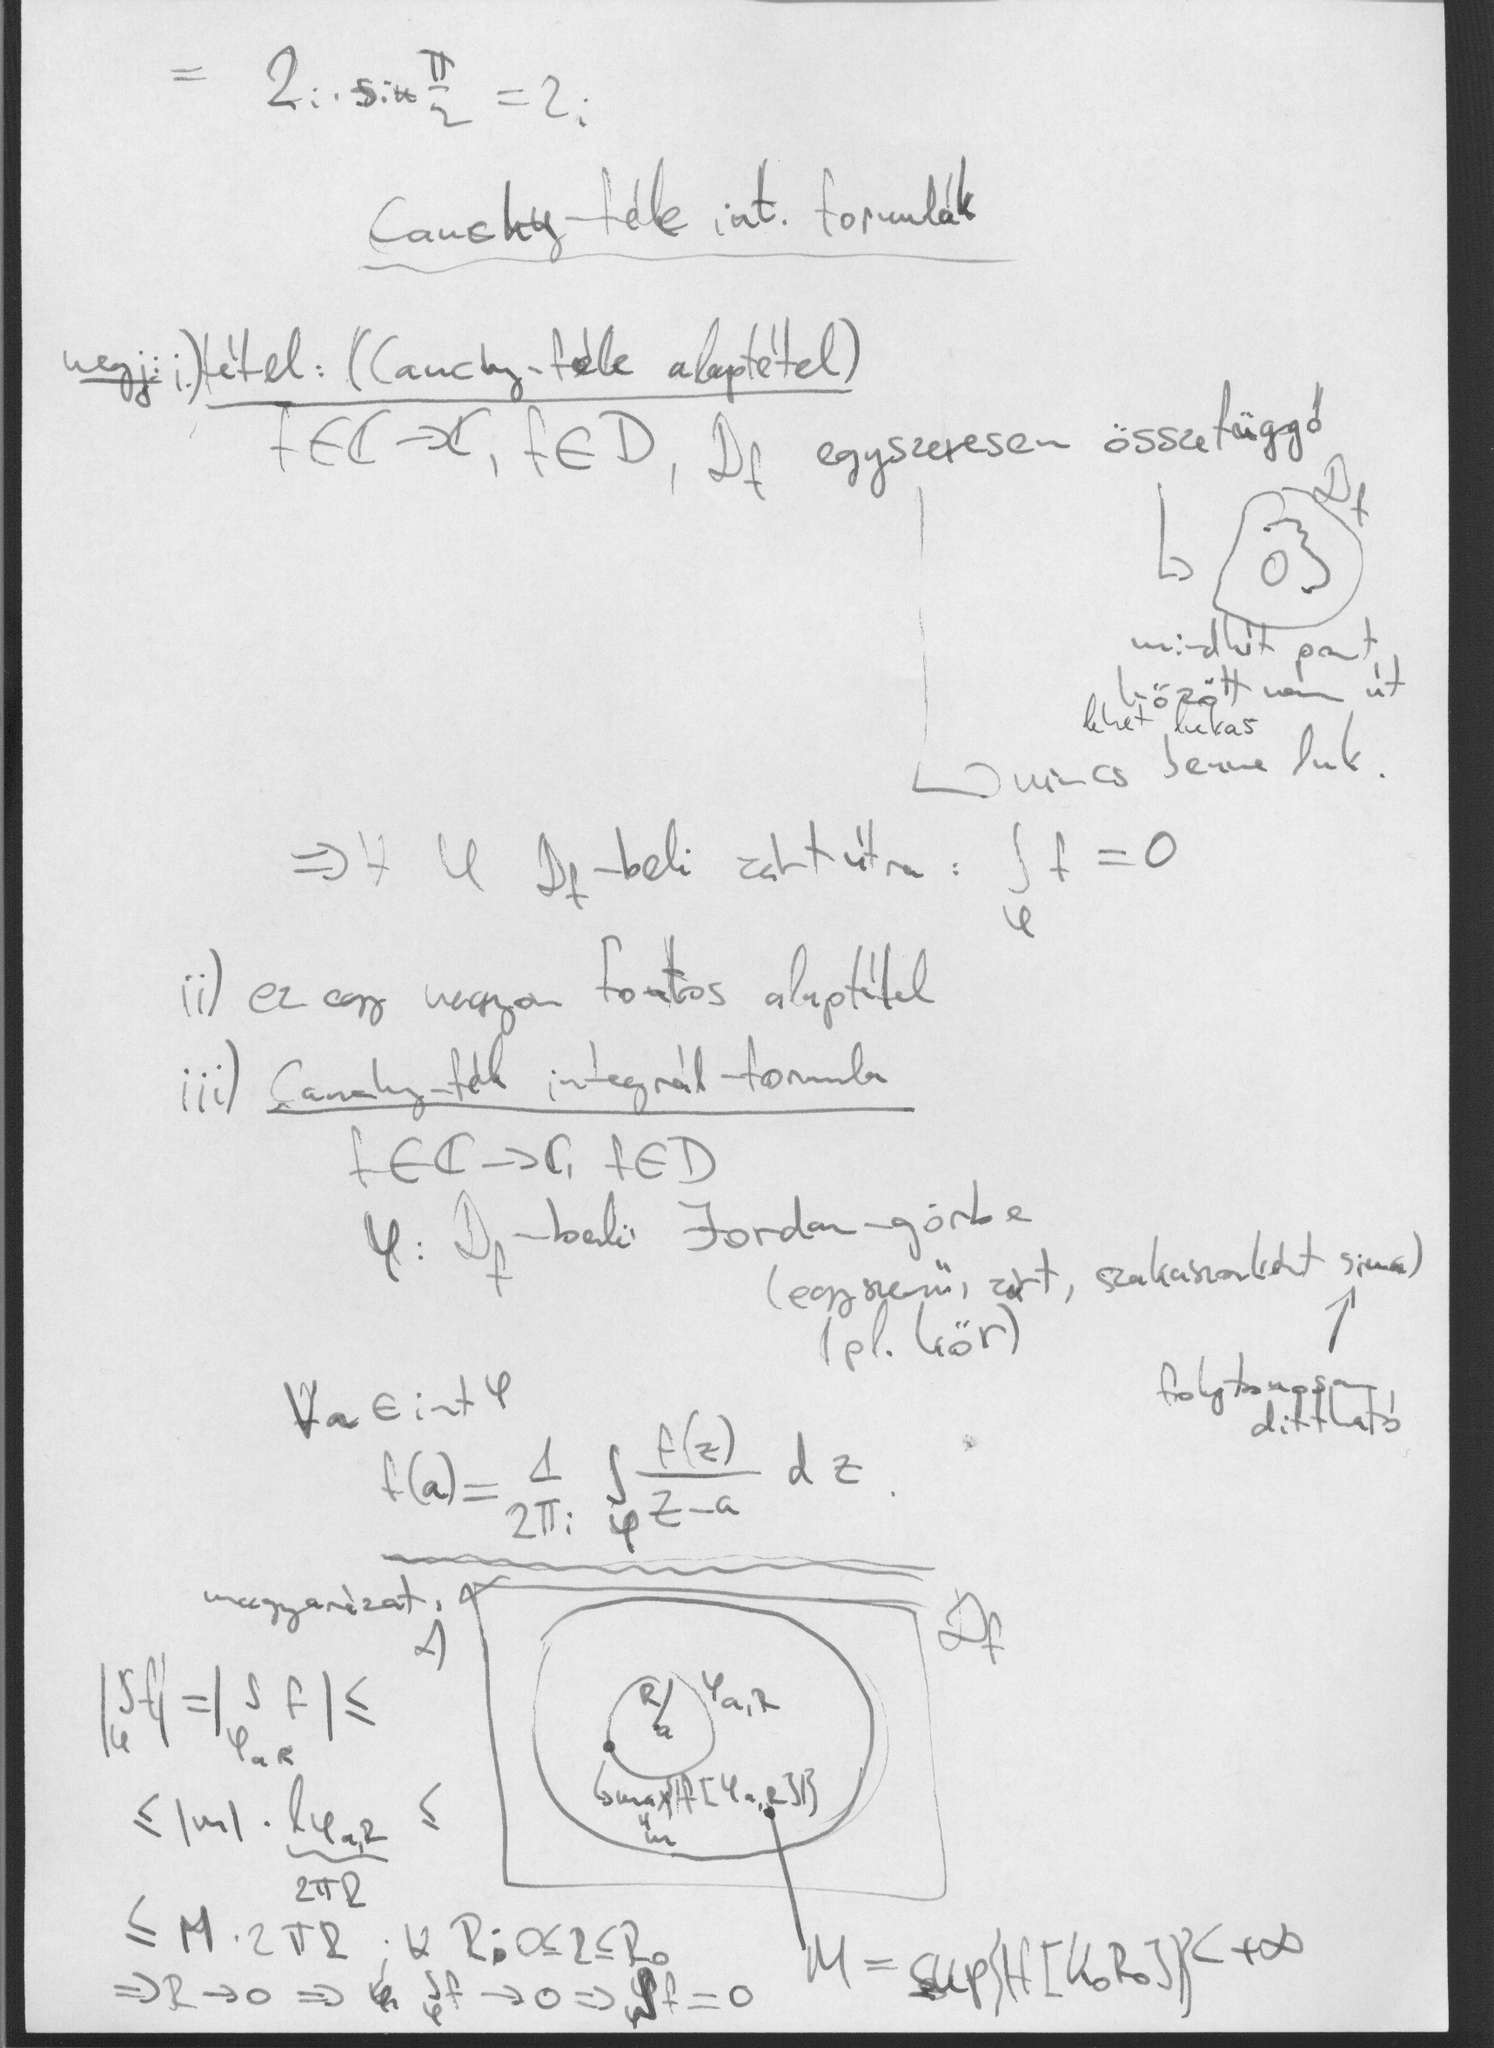 = 2i · sin π/2 = 2i
Cauchy-féle int. formulák
megj: i.) tétel: (Cauchy-féle alaptétel)
f ∈ ℂ → ℂ, f ∈ D, D_f egyszeresen összefüggő
D_f
mindkét pont
között van út
lehet lukas
nincs benne luk.
⇒ ∀ φ D_f-beli zárt útra: ∫_φ f = 0
ii) ez egy nagyon fontos alaptétel
iii) Cauchy-féle integrál-formula
f ∈ ℂ → ℂ, f ∈ D
φ: D_f-beli Jordan-görbe
(egyszerű, zárt, szakaszonként sima)
(pl. kör)
folytonosan
diffható
∀ a ∈ int φ
f(a) = 1/(2πi) ∫_φ f(z)/(z-a) dz.
magyarázat:
1)
D_f
R
a
φ_{a,R}
max{|f[φ_{a,R}]|}
m
|∫_φ f| = |∫_{φ_{a,R}} f| ≤
≤ |m| · l_{φ_{a,R}} ≤
2πR
≤ M · 2πR ; ∀ R: 0 ≤ R ≤ R₀
M = sup{|f[K₀R₀]|} < +∞
⇒ R → 0 ⇒ ∫_φ f → 0 ⇒ ∫_φ f = 0